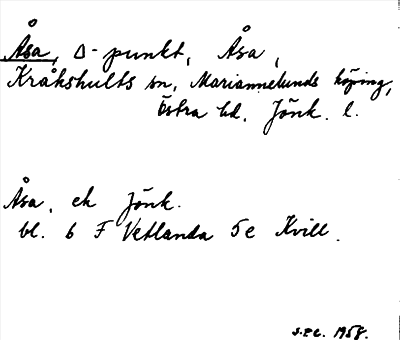 Åsa, Δ-punkt, Åsa,
Kråkshults sn, Mariannelunds köping,
Östra hd, Jönk. l.
Åsa, ek Jönk.
bl. 6 F Vetlanda 5e Kvill.
1958.